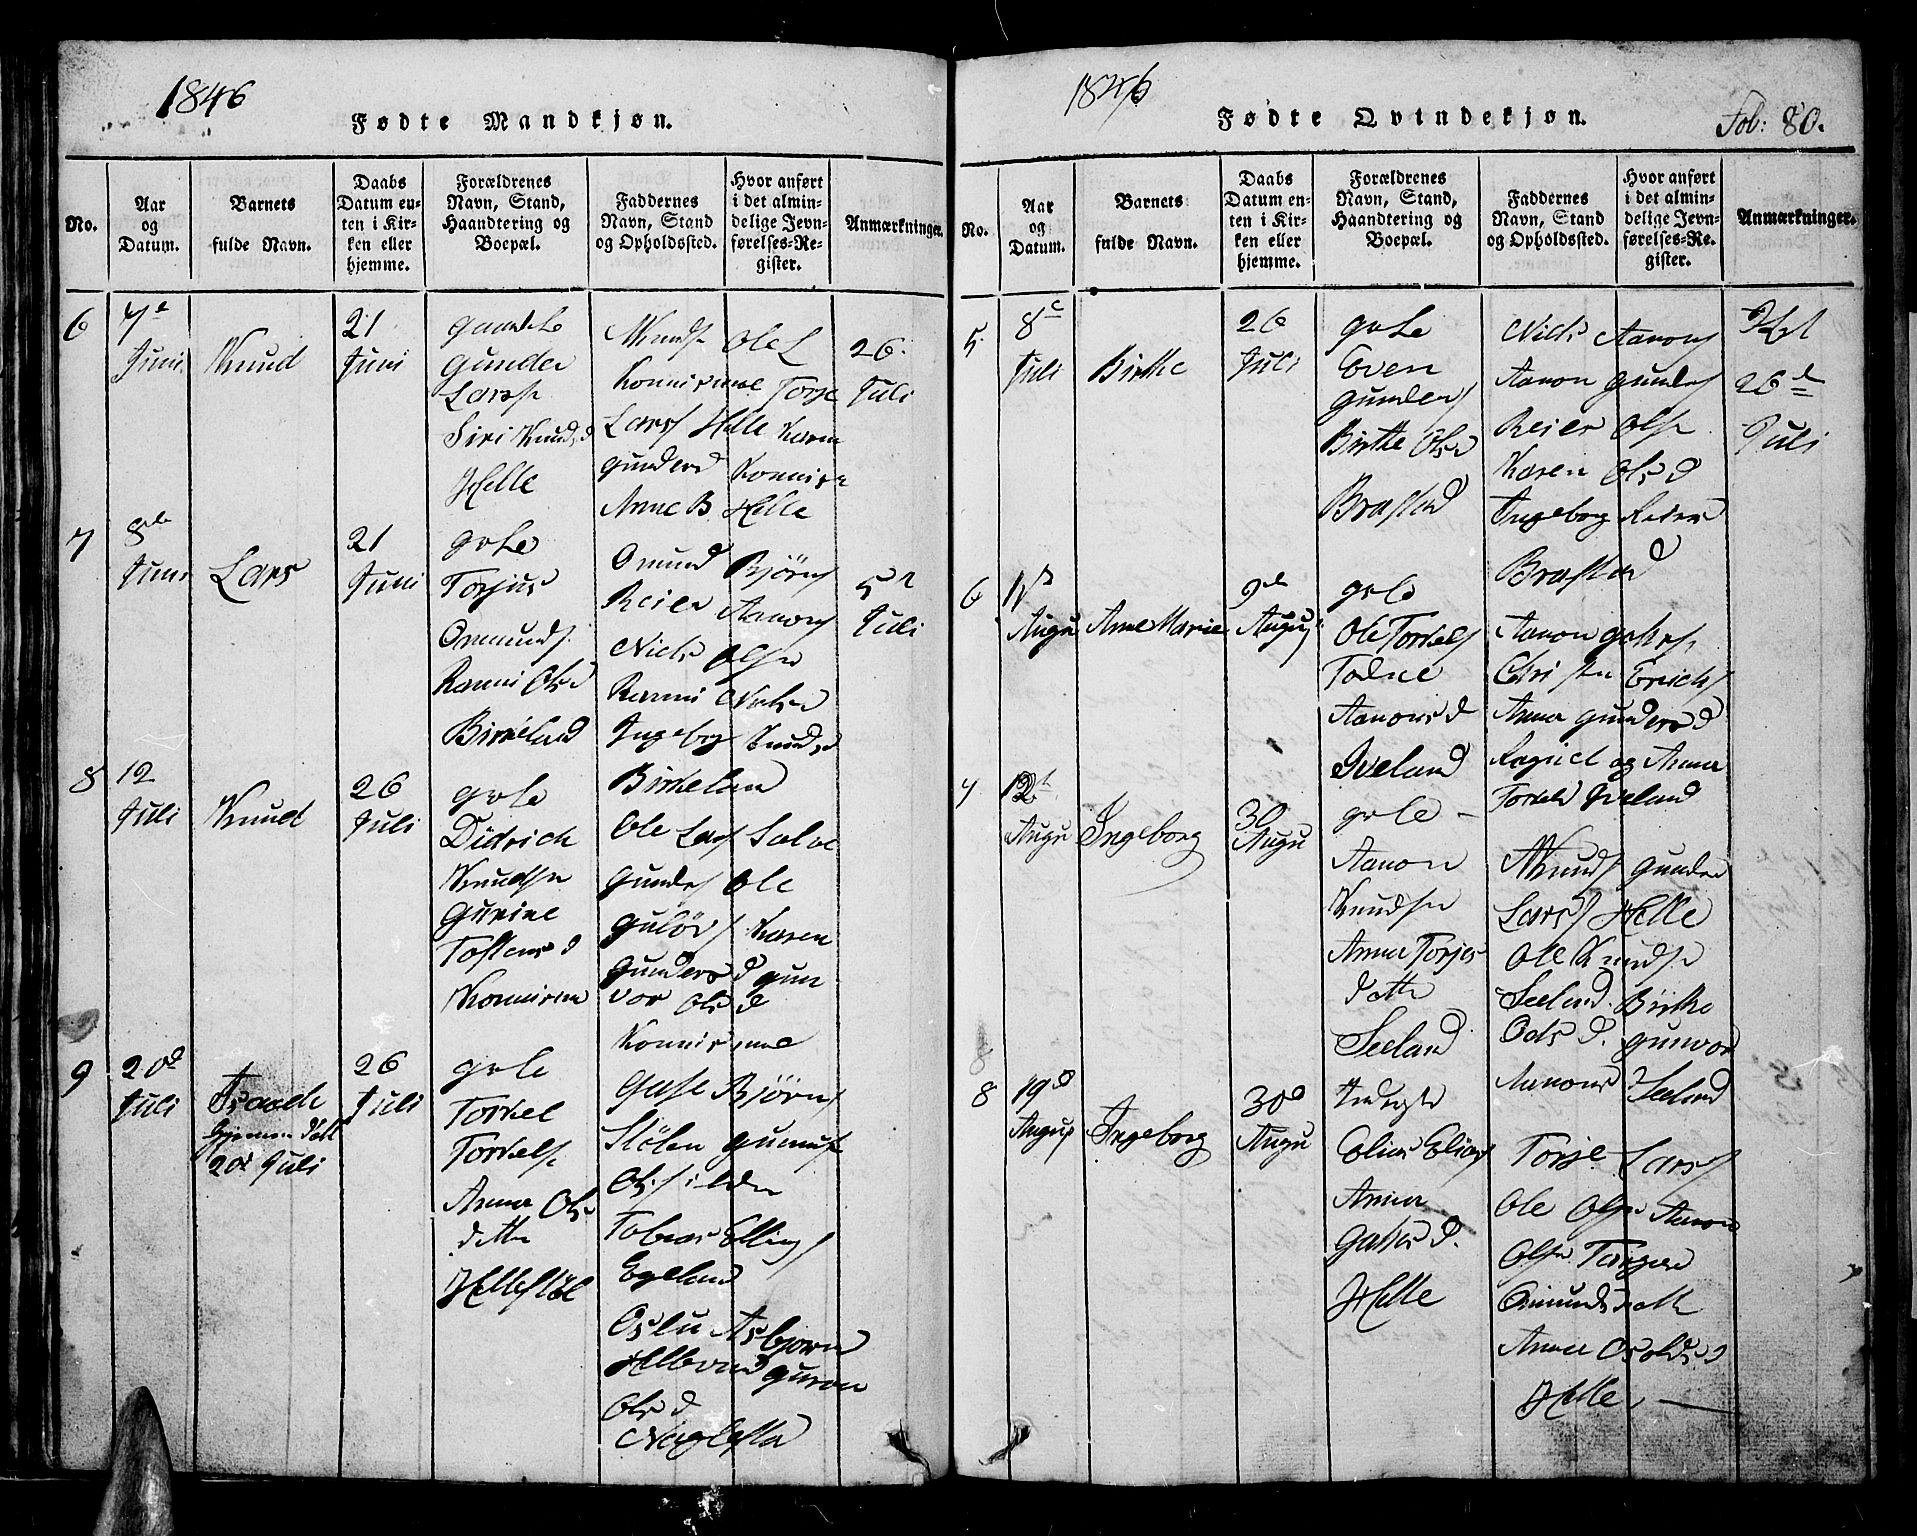 1846
Fødte Mandkjøn.
No.
Aar
og
Datum.
Barnets
fulde Navn.
Daabs
Datum en-
ten i Kir-
ken eller
hjemme.
Forældrenes
Navn, Stand,
Haandtering og
Boepæl.
Faddernes
Navn, Stand
og Opholdssted.
Hvor anført
i det almin-
delige Jevn-
førelses-Re-
gister.
Anmærkninger.
6
7e
Juni
Knud
21
Juni
Gunder
Larss
Siri Knudsd
Helle
Knuds Ole L
Konnismoe Torje
Larss Helle Karen
Gundersd Konnism
Anne B. Helle
26
Juli
7
8de
Juni
Lars
21
Juni
gvle
Torjus
Omunds
Ranni Olsd
Birkeland
Omund Bjørns
Reier Aanons
Niels Olsen
Ranni Nielsd
Ingeborg Knudsd
Birkelan
5
Juli
8
12
Juli
Knud
26
Juli
gvle
Didrich
Knudsen
Gurine
Tostensd
Konnismo
Ole Lars Salve
Gunders Ole
Guløs Karen
Gundersd Gun
vor Olsd
Konnismoe
9
20d
Juli
Isaach
Hjemme døbt
20d Juli
26
Juli
gvle
Torkel
Torkels
Anna Ols
datter
Hellestøl
Gase Bjørns
Stølen
Tobias Ellings
Egeland
Oslu Asbjørn
Guron
Olsd
Naglestad
1846
Fødte Qvindekjøn.
Fol: 80.
No.
Aar
og
Datum.
Barnets
fulde Navn.
Daabs
Datum en-
ten i Kir-
ken eller
hjemme.
Forældrenes
Navn, Stand,
Haandtering og
Boepæl.
Faddernes
Navn, Stand
og Opholdssted.
Hvor anført
i det almin-
delige Jevn-
førelses-Re-
gister.
Anmærkninger.
5
8
Juli
Birthe
26
Juli
gvle
Even
Gunders
Birthe Olsd
Brastad
Niels Aanons
Aanon Gunders
Reier Ols
Karen Olsd
Ingeborg Reiers
Brastad
26d
Juli
6
Augu
Anne Marie
9de
Augus
gvle
Ole Torkels
Aanonsd
Iveland
Aanon
Christen Erichs
Anna Gundersd
og Anna
Torkels Iveland
7
12
Augu
Ingeborg
30
Augu
gvle
Aanon
Knudsen
Anna Torjes
datte
Seeland
Knuds Gunder
Larss Helle
Ole Knuds
Seeland Birthe
Olsd. Gunvor
Aanons Seeland
8
19d
Augus
Ingeborg
30d
Augu
Elias Elias
Anna
Helle
Torje Larss
Ole Olsen Aanon
Olsen
Omundsdatte
Anna Osoldsd
Helle